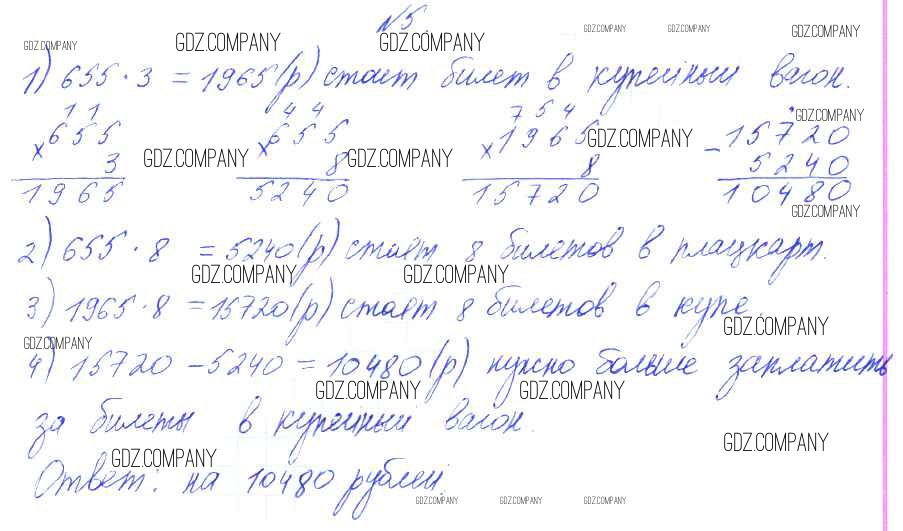 №5
GDZ.COMPANY GDZ.COMPANY GDZ.COMPANY GDZ.COMPANY GDZ.COMPANY GDZ.COMPANY
1) 655 · 3 = 1965 (р) стоит билет в купейный вагон.
1 1 4 4 7 5 4
×655 ×655 ×1965 −15720
GDZ.COMPANY GDZ.COMPANY
3 8 8 5240
GDZ.COMPANY GDZ.COMPANY
1965 5240 15720 10480
GDZ.COMPANY
2) 655 · 8 = 5240 (р) стоят 8 билетов в плацкарт.
GDZ.COMPANY GDZ.COMPANY
3) 1965 · 8 = 15720 (р) стоят 8 билетов в купе
GDZ.COMPANY
GDZ.COMPANY
4) 15720 − 5240 = 10480 (р) нужно больше заплатить
GDZ.COMPANY GDZ.COMPANY
за билеты в купейный вагон.
GDZ.COMPANY
GDZ.COMPANY
Ответ: на 10480 рублей.
GDZ.COMPANY GDZ.COMPANY GDZ.COMPANY